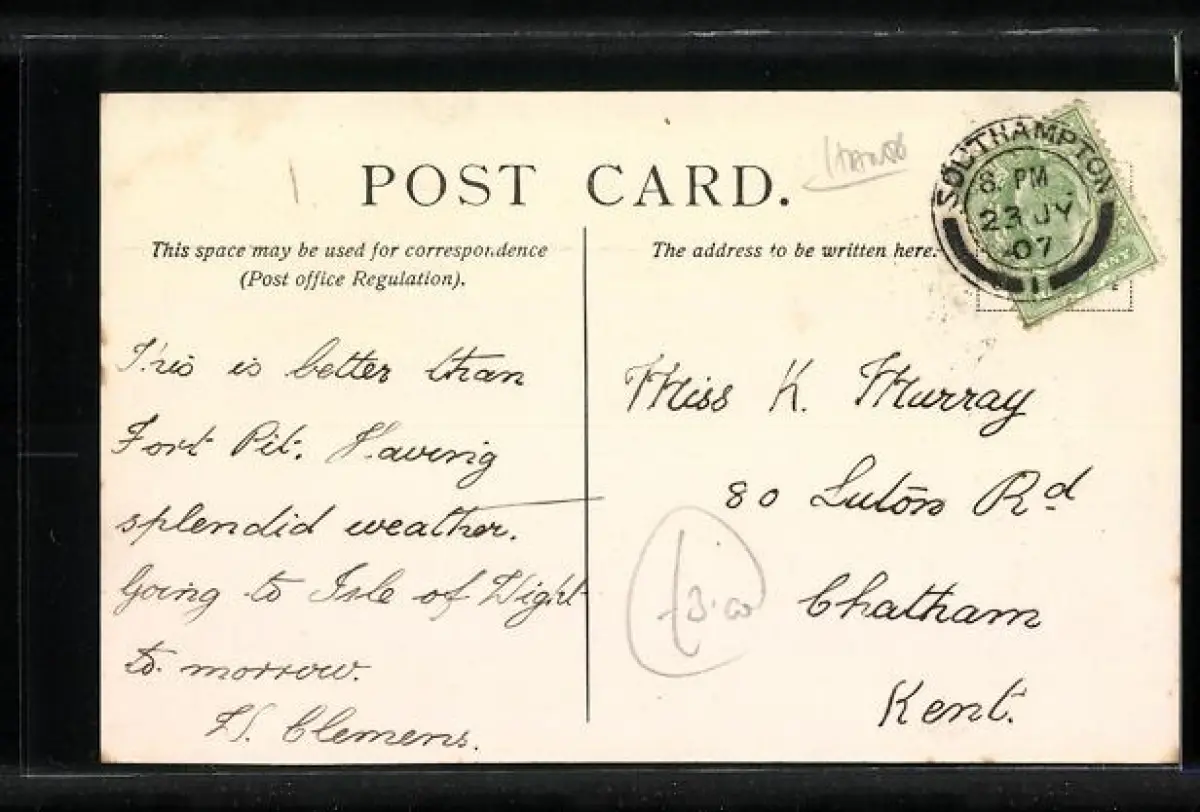 POST CARD.
This space may be used for correspondence
(Post office Regulation).
The address to be written here.
SOUTHAMPTON
8. PM
23 JY
07
1
PENNY
This is better than
Fort Pit. Having
splendid weather.
Going to Isle of Wight
to morrow.
H. Clemens.
Miss K. Murray
80 Luton Rd
Chatham
Kent.
£3.00